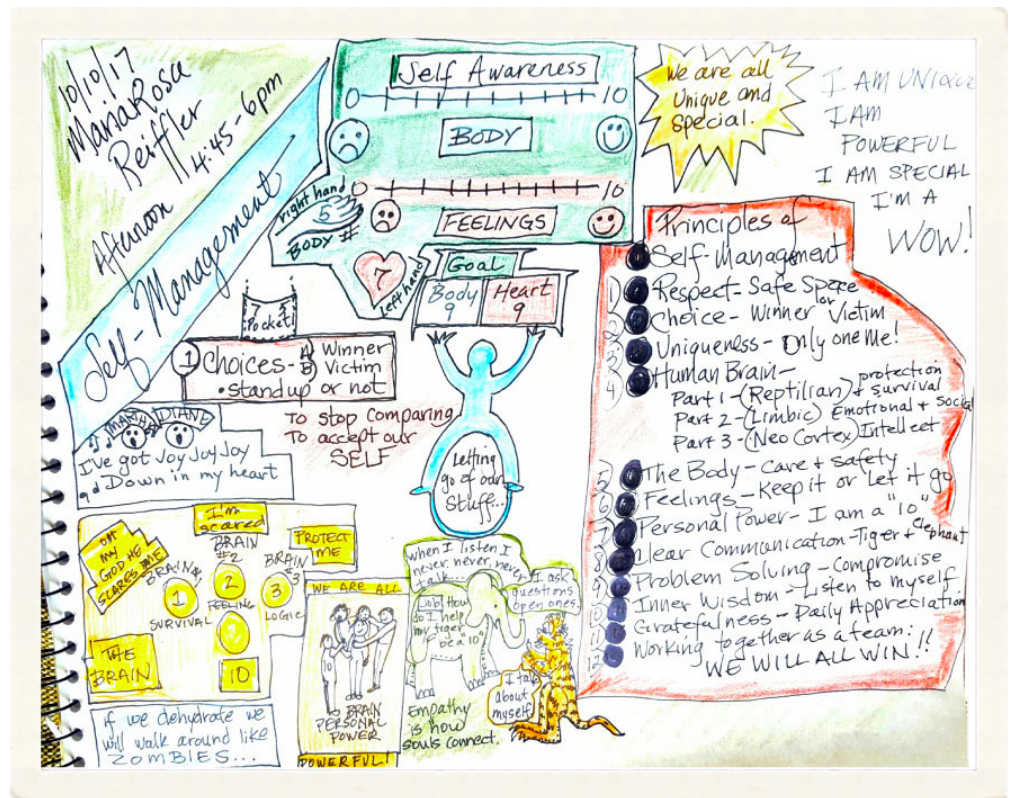 10/10/17
MariaRosa
Reiffler
4:45-6pm
Afternoon
Self-Management
Self Awareness
0 10
BODY
0 10
FEELINGS
right hand
5
BODY #
7
left hand
Goal
Body Heart
9 9
We are all
Unique and
Special.
I AM UNIQUE
I AM
POWERFUL
I AM SPECIAL
I'M A
WOW!
Pocket
1 Choices - A) Winner
B) Victim
• stand up or not
To stop comparing
To accept our
SELF
Letting
go of our
Stuff...
DIANE
I've got Joy Joy Joy
Down in my heart
OH
MY
GOD HE
SCARES ME
I'm
scared
PROTECT
ME
BRAIN #1
1
SURVIVAL
BRAIN
#2
2
FEELING
BRAIN
#3
3
LOGIC
THE
BRAIN
10
if we dehydrate we
will walk around like
ZOMBIES...
WE ARE ALL
10
BRAIN
PERSONAL
POWER
POWERFUL!
when I listen I
never, never, never
talk...
I ask
questions
open ones.
How
do I help
my tiger
be a "10"
I talk
about
myself
Empathy
is how
souls connect.
Principles of
Self-Management
1) Respect - Safe Space
2) Choice - Winner or Victim
3) Uniqueness - Only one Me!
4) Human Brain -
Part 1 - (Reptilian) protection + survival
Part 2 - (Limbic) Emotional + Social
Part 3 - (Neo Cortex) Intellect
The Body - Care + safety
6 Feelings - Keep it or Let it go
7 Personal Power - I am a "10"
8 Clear Communication - Tiger + Elephant
9 Problem Solving - Compromise
10 Inner Wisdom - Listen to myself
11 Gratefulness - Daily Appreciation
12 Working together as a team:
WE WILL ALL WIN!!